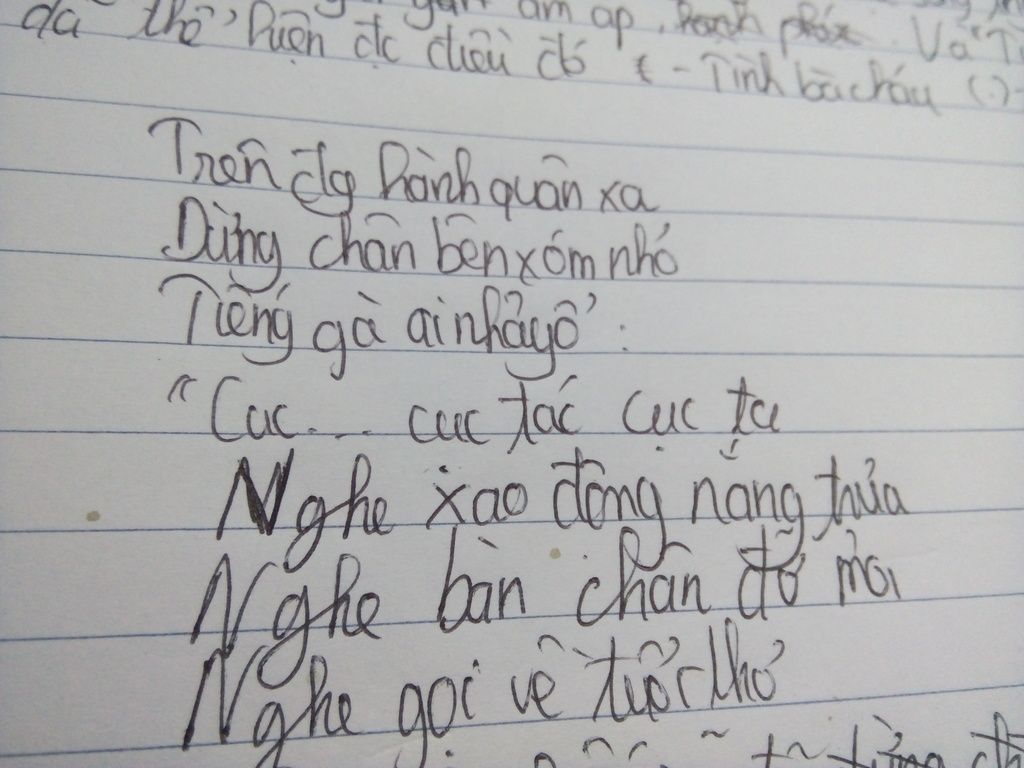 ấm áp, hạnh phúc. Và
đã thể hiện đc điều đó - Tình bà cháu (.)
Trên đg hành quân xa
Dừng chân bên xóm nhỏ
Tiếng gà ai nhảy ổ :
"Cục... cục tác cục ta
Nghe xao động nắng trưa
Nghe bàn chân đỡ mỏi
Nghe gọi về tuổi thơ